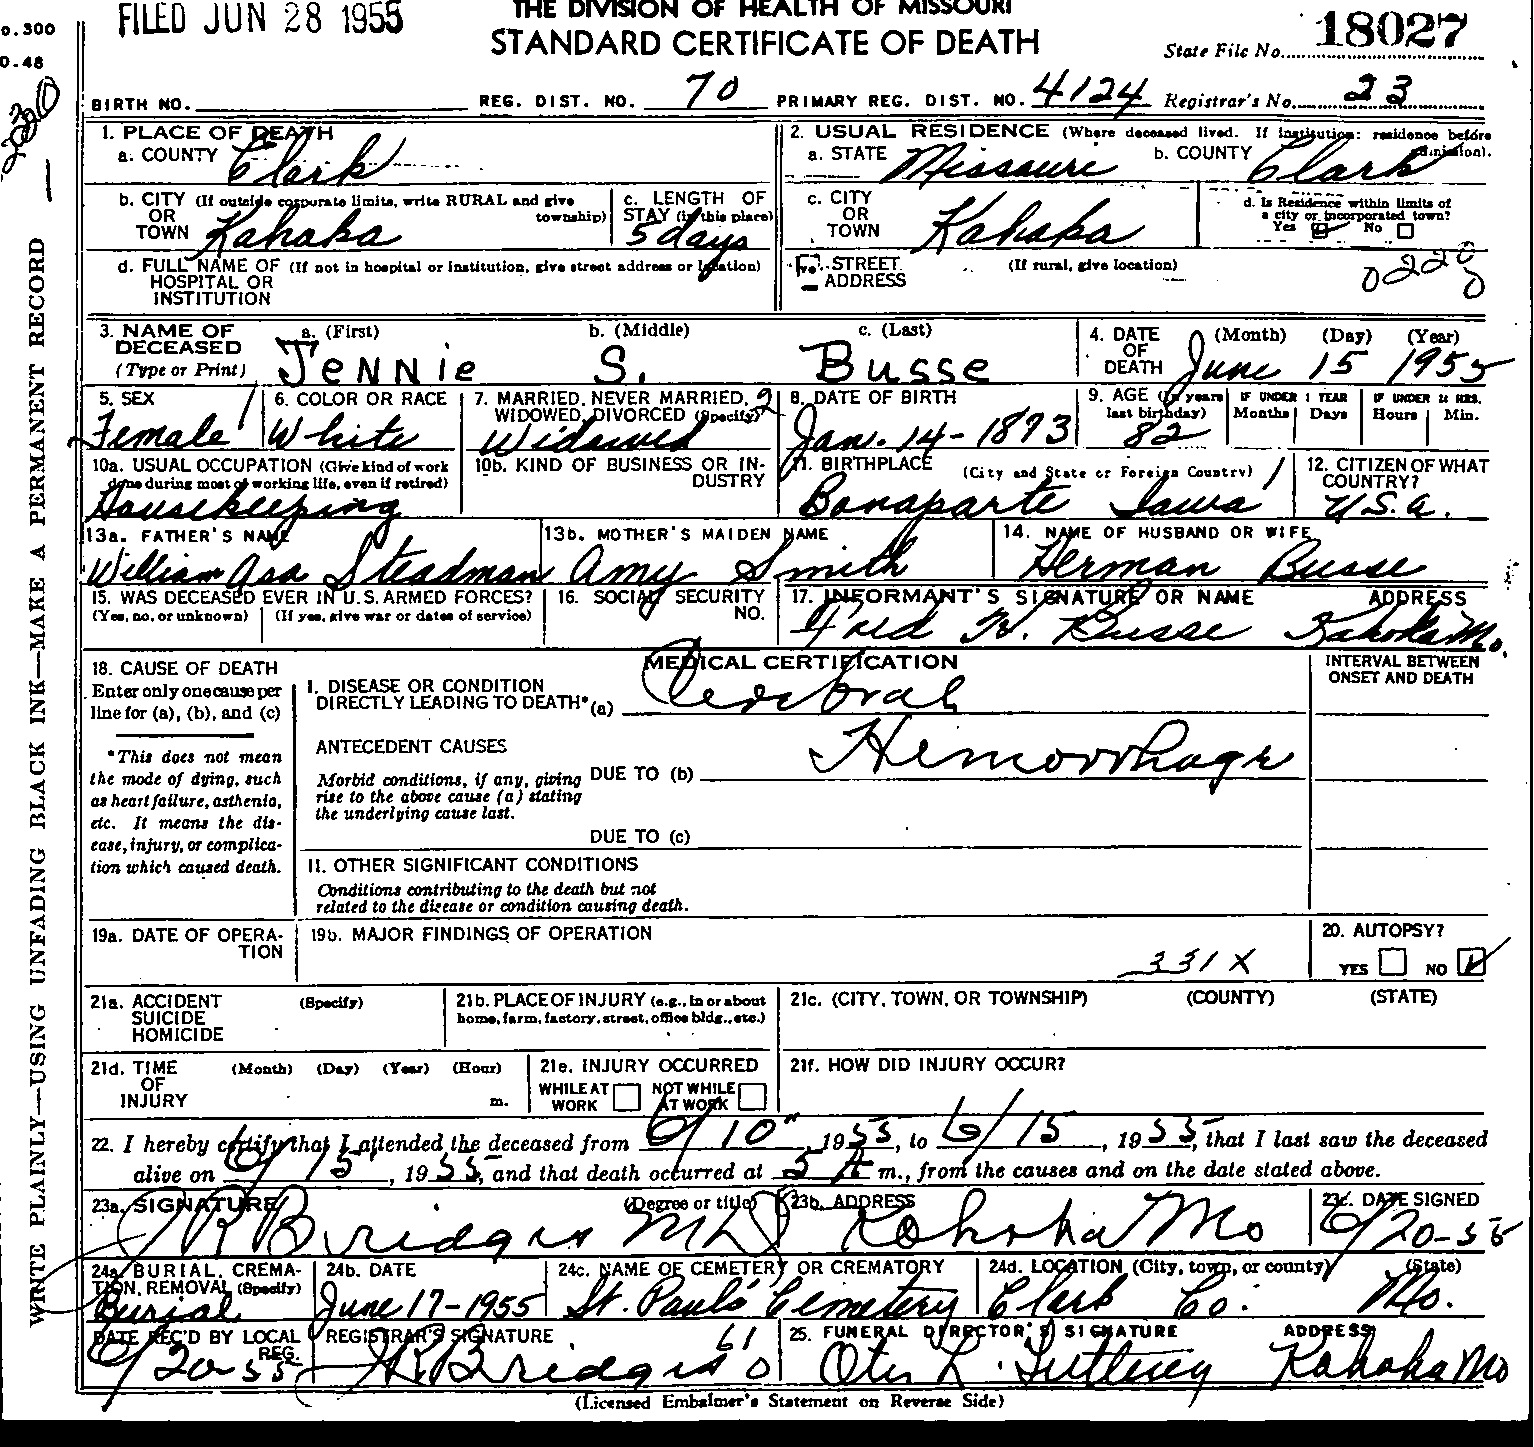 FILED JUN 28 1955
THE DIVISION OF HEALTH OF MISSOURI
STANDARD CERTIFICATE OF DEATH
State File No. 18027
0.300
0.48
BIRTH NO. REG. DIST. NO. 70 PRIMARY REG. DIST. NO. 4124 Registrar's No. 23
WRITE PLAINLY—USING UNFADING BLACK INK—MAKE A PERMANENT RECORD
1. PLACE OF DEATH
a. COUNTY Clark
2. USUAL RESIDENCE (Where deceased lived. If institution: residence before admission).
a. STATE Missouri b. COUNTY Clark
b. CITY (If outside corporate limits, write RURAL and give township) OR TOWN Kahoka
c. LENGTH OF STAY (in this place) 5 days
c. CITY OR TOWN Kahoka
d. Is Residence within limits of a city or incorporated town? Yes No
d. FULL NAME OF HOSPITAL OR INSTITUTION (If not in hospital or institution, give street address or location)
STREET ADDRESS (If rural, give location)
0220
0
3. NAME OF DECEASED (Type or Print) a. (First) b. (Middle) c. (Last)
Jennie S. Busse
4. DATE OF DEATH (Month) (Day) (Year)
June 15 1955
5. SEX Female
6. COLOR OR RACE White
7. MARRIED, NEVER MARRIED, WIDOWED, DIVORCED (Specify) 2 Widowed
8. DATE OF BIRTH Jan. 14-1873
9. AGE (In years last birthday) 82
IF UNDER 1 YEAR Months Days
IF UNDER 24 HRS. Hours Min.
10a. USUAL OCCUPATION (Give kind of work done during most of working life, even if retired) Housekeeping
10b. KIND OF BUSINESS OR INDUSTRY
11. BIRTHPLACE (City and State or Foreign Country) Bonaparte Iowa
12. CITIZEN OF WHAT COUNTRY? U.S.A.
13a. FATHER'S NAME William Asa Steadman
13b. MOTHER'S MAIDEN NAME Amy Smith
14. NAME OF HUSBAND OR WIFE Herman Busse
15. WAS DECEASED EVER IN U.S. ARMED FORCES? (Yes, no, or unknown) (If yes, give war or dates of service)
16. SOCIAL SECURITY NO.
17. INFORMANT'S SIGNATURE OR NAME ADDRESS
Fred H. Busse Kahoka Mo.
18. CAUSE OF DEATH
Enter only one cause per line for (a), (b), and (c)
*This does not mean the mode of dying, such as heart failure, asthenia, etc. It means the disease, injury, or complication which caused death.
MEDICAL CERTIFICATION
INTERVAL BETWEEN ONSET AND DEATH
I. DISEASE OR CONDITION DIRECTLY LEADING TO DEATH* (a) Cerebral
ANTECEDENT CAUSES
Morbid conditions, if any, giving rise to the above cause (a) stating the underlying cause last.
DUE TO (b) Hemorrhage
DUE TO (c)
II. OTHER SIGNIFICANT CONDITIONS
Conditions contributing to the death but not related to the disease or condition causing death.
19a. DATE OF OPERATION
19b. MAJOR FINDINGS OF OPERATION
331X
20. AUTOPSY? YES NO
21a. ACCIDENT SUICIDE HOMICIDE (Specify)
21b. PLACE OF INJURY (e.g., in or about home, farm, factory, street, office bldg., etc.)
21c. (CITY, TOWN, OR TOWNSHIP) (COUNTY) (STATE)
21d. TIME OF INJURY (Month) (Day) (Year) (Hour) m.
21e. INJURY OCCURRED WHILE AT WORK NOT WHILE AT WORK
21f. HOW DID INJURY OCCUR?
22. I hereby certify that I attended the deceased from 6/10, 1955, to 6/15, 1955, that I last saw the deceased
alive on 6/15, 1955, and that death occurred at 5 A m., from the causes and on the date stated above.
23a. SIGNATURE (Degree or title) JR Bridges MD
23b. ADDRESS Kahoka Mo
23c. DATE SIGNED 6/20-55
24a. BURIAL, CREMATION, REMOVAL (Specify) Burial
24b. DATE June 17-1955
24c. NAME OF CEMETERY OR CREMATORY St. Paul's Cemetery
24d. LOCATION (City, town, or county) (State) Clark Co. Mo.
DATE REC'D BY LOCAL REG. 6/20-55
REGISTRAR'S SIGNATURE JR Bridges
61
0
25. FUNERAL DIRECTOR'S SIGNATURE ADDRESS
Otis L. Kahoka Mo
(Licensed Embalmer's Statement on Reverse Side)